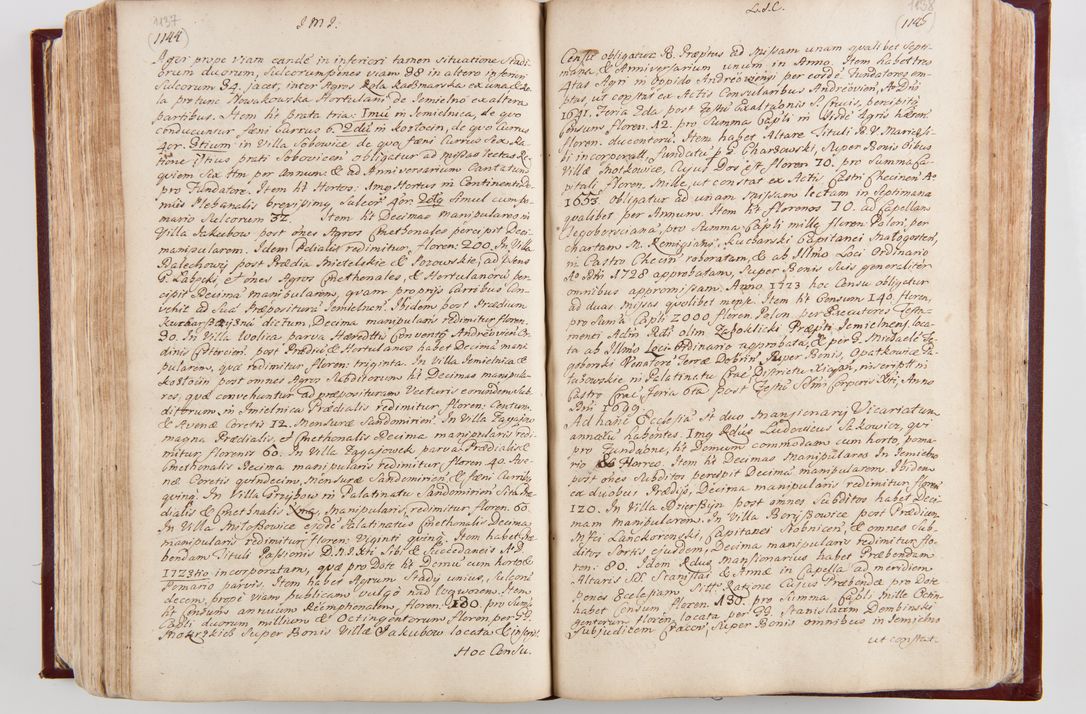 1137
(1144)
J M J.
Agri prope viam eandē in inferiori tamen situatione Stadi-
orum duorum, Sulcorum penes viam 38 in altero in fine
Sulcorum 34. jacet, inter Agros Rola Kaźmarska ex una &
la pretunc Nowakowska Hortulani de Jemielno ex altera
partibus. Item ht prata tria: Imū in Jemielnica, de quo
conducuntur fœni Currus 6. 2dū in Kostocin, de quo Currus
4or. 3tium in Villa Sobowice de quo fœni Currus Sex. Ra-
tione hujus prati Sobovicen obligatur ad missas lectas Re-
quiem Sex ttm per Annum. & ad Anniversarium Cantatum
pro Fundatore. Item ht Hortos: Imq Hortus in Continenti
miis Plebanalis brevissimq Sulcorū 4or 2dq Simul cum po-
mario Sulcorum 32. Item ht Decimas manipulares in
Villa Jakubow post oñes Agros Cmethonales percipit Deci-
manipularem. Idem Prædialis redimitur, floren: 200. In Villa
Palechowy post Prædia Mietelskie & Jozowskie, ad prens
G. Łabęcki, & oñes Agros Cmethonales, & Hortulanorū per-
cipit Decimā manipularem, quam proprijs Curribus Con-
vehit ad Suā Præpositurā Jemielnen. Ibidem post Prædium
dictum, Decima manipularis redimitur floren:
30. In Villa Wolica parva Hæreditis Conventq Andreovien
dinis Cistercien: post Prædiū & Hortulanos habet Decimā mani
pularem, quæ redimitur floren: triginta. In Villa Jemielnica &
Kostocin post omnes Agros Subditorum ht Decimas manipula-
res, quæ convehuntur ad præposituram Vecturis eorundem Sub-
ditorum, in Jmielnica Prædialis redimitur floren: Centum,
& Avenæ Coretis 12. Mensuræ Sandomirien. In Villa Tęgajow
magna Prædialis, & Cmethonalis Decima manipularis redi-
mitur florenis 60. In Villa Tęgajowek parva Prædialis &
Cmethonalis Decima manipularis redimitur floren 40. Ave-
næ Coretis quindecim, mensuræ Sandomirien & fœni Curribq
quinq. In Villa Grzybow in Palatinatu Sandomirien Sita Præ-
dialis & Cmethonalis Manipularis, redimitur, floren. 60.
In Villa Mstossowice ejusdē Palatinatus Cmethonalis Decima
manipularis redimitur floren: Viginti quinq. Item habet Præ
bendam Tituli Passionis D.N.J. Xti Sibi & Succedaneis A.D.
1723tio incorporatam, quæ pro Dote ht Domū cum horto &
Pomario parvis. Item habet Agrum Stadij unius, Sulcorū
decem, propè viam publicam vulgò nad Wąwozem. Item
ht Censum annuum Reemptionalem floren: 180. pro Sumā
Capli duorum millium & Octingentorum floren. per GG.
Super Bonis Villæ Jakubow locata &
Hoc Censu.
1138
(1145)
L. J. C.
Censu obligatur R. Præptus ad Missam unam qualibet Septi-
mana, & Anniversarium unum in Anno. Item habet tres
4tas Agri in Oppido Andreoviensi per eosdē Fundatores em-
ptas, ut constat ex Actis Consularibus Andreovien, Ao Dni
1691. Feria 2da post Festū Exaltaonis S. Crucis, percipitq
Censum floren. 12. pro Summa Capli in ijsdē Agris hæren:
floren. ducentorū. Item habet Altare Tituli B.V. Mariæ Si-
bi incorporatū, Fundatū p G. Charzowski, Super Bonis oibus
Villæ Mostkowice, Cujus Dos est floren 70. pro Summa Ca-
pitali floren. Mille, ut constat ex Actis Castri Checinen Ao
1653. obligatur ad unam Missam lectam in Septimana
qualibet per Annum. Item ht florenos 70. ad Capellam
Ujegobersciana, pro Summa Capli mille floren Polon: per
chartam M. Remigiani Kucharski Capitanei Małogosten,
in Castro Checin roboratam, & ab Illmo Loci Ordinario
Ao Dni 1728 approbatam, Super Bonis Suis generaliter
omnibus appromissam. Anno 1723 hoc Censu obligatur
ad duas Missas quolibet mense. Item ht Censum 140. floren,
pro Sumā Capli 2000 floren. Polon. per Executores Testa-
menti Adm Rdi olim Zegoklicki Præpti Jemielnen, loca-
ta ab Illmo Loci Ordinario approbata, & per G. Michaelē Ję-
goborski Venatorē Terræ Dobrin, Super Bonis, Opatkowice Ja-
kubowskie in Palatinatu Crac. Districtu Xiążen, inscripti in
Castro Crac. feria 6ta post Festū Sstmi Corporis Xti, Anno
Dni 1699.
Ad hanc Ecclesiā St duo Mansionarij Vicariatum
annexū habentes. Imq Rdus Ludovicus Sakowicz, qui
pro Fundaone, ht Domum commodam cum horto, poma-
rio & Horreo. Item ht Decimas Manipulares In Jemielno
post oñes Subditos percipit Decimā manipularem. Ibidem
ex duobus Prædijs, Decima manipularis redimitur floren
120. In Villa Dzierzbyn post omnes Subditos habet Deci-
mam manipularem. In Villa Boryszowice post Prædium
Mfci Lanckorenski, Capitanei Stobnicen, & omnes Sub-
ditos Sortis ejusdem, Decima manipularis redimitur flo-
ren: 80. Idem Rdus Mansionarius habet Præbendam
Altaris SS. Stanislai & Annæ in Capella ad meridiem
penes Ecclesiam Sittā. Ratione Cujus Præbendæ pro Dote
habet Censum floren 130. pro Summa Capli mille Octin-
gentorum floren. locata per GG. Stanislaum Dembinski
Subjudicem Cracov, Super Bonis omnibus in Jemielno
ut constat.